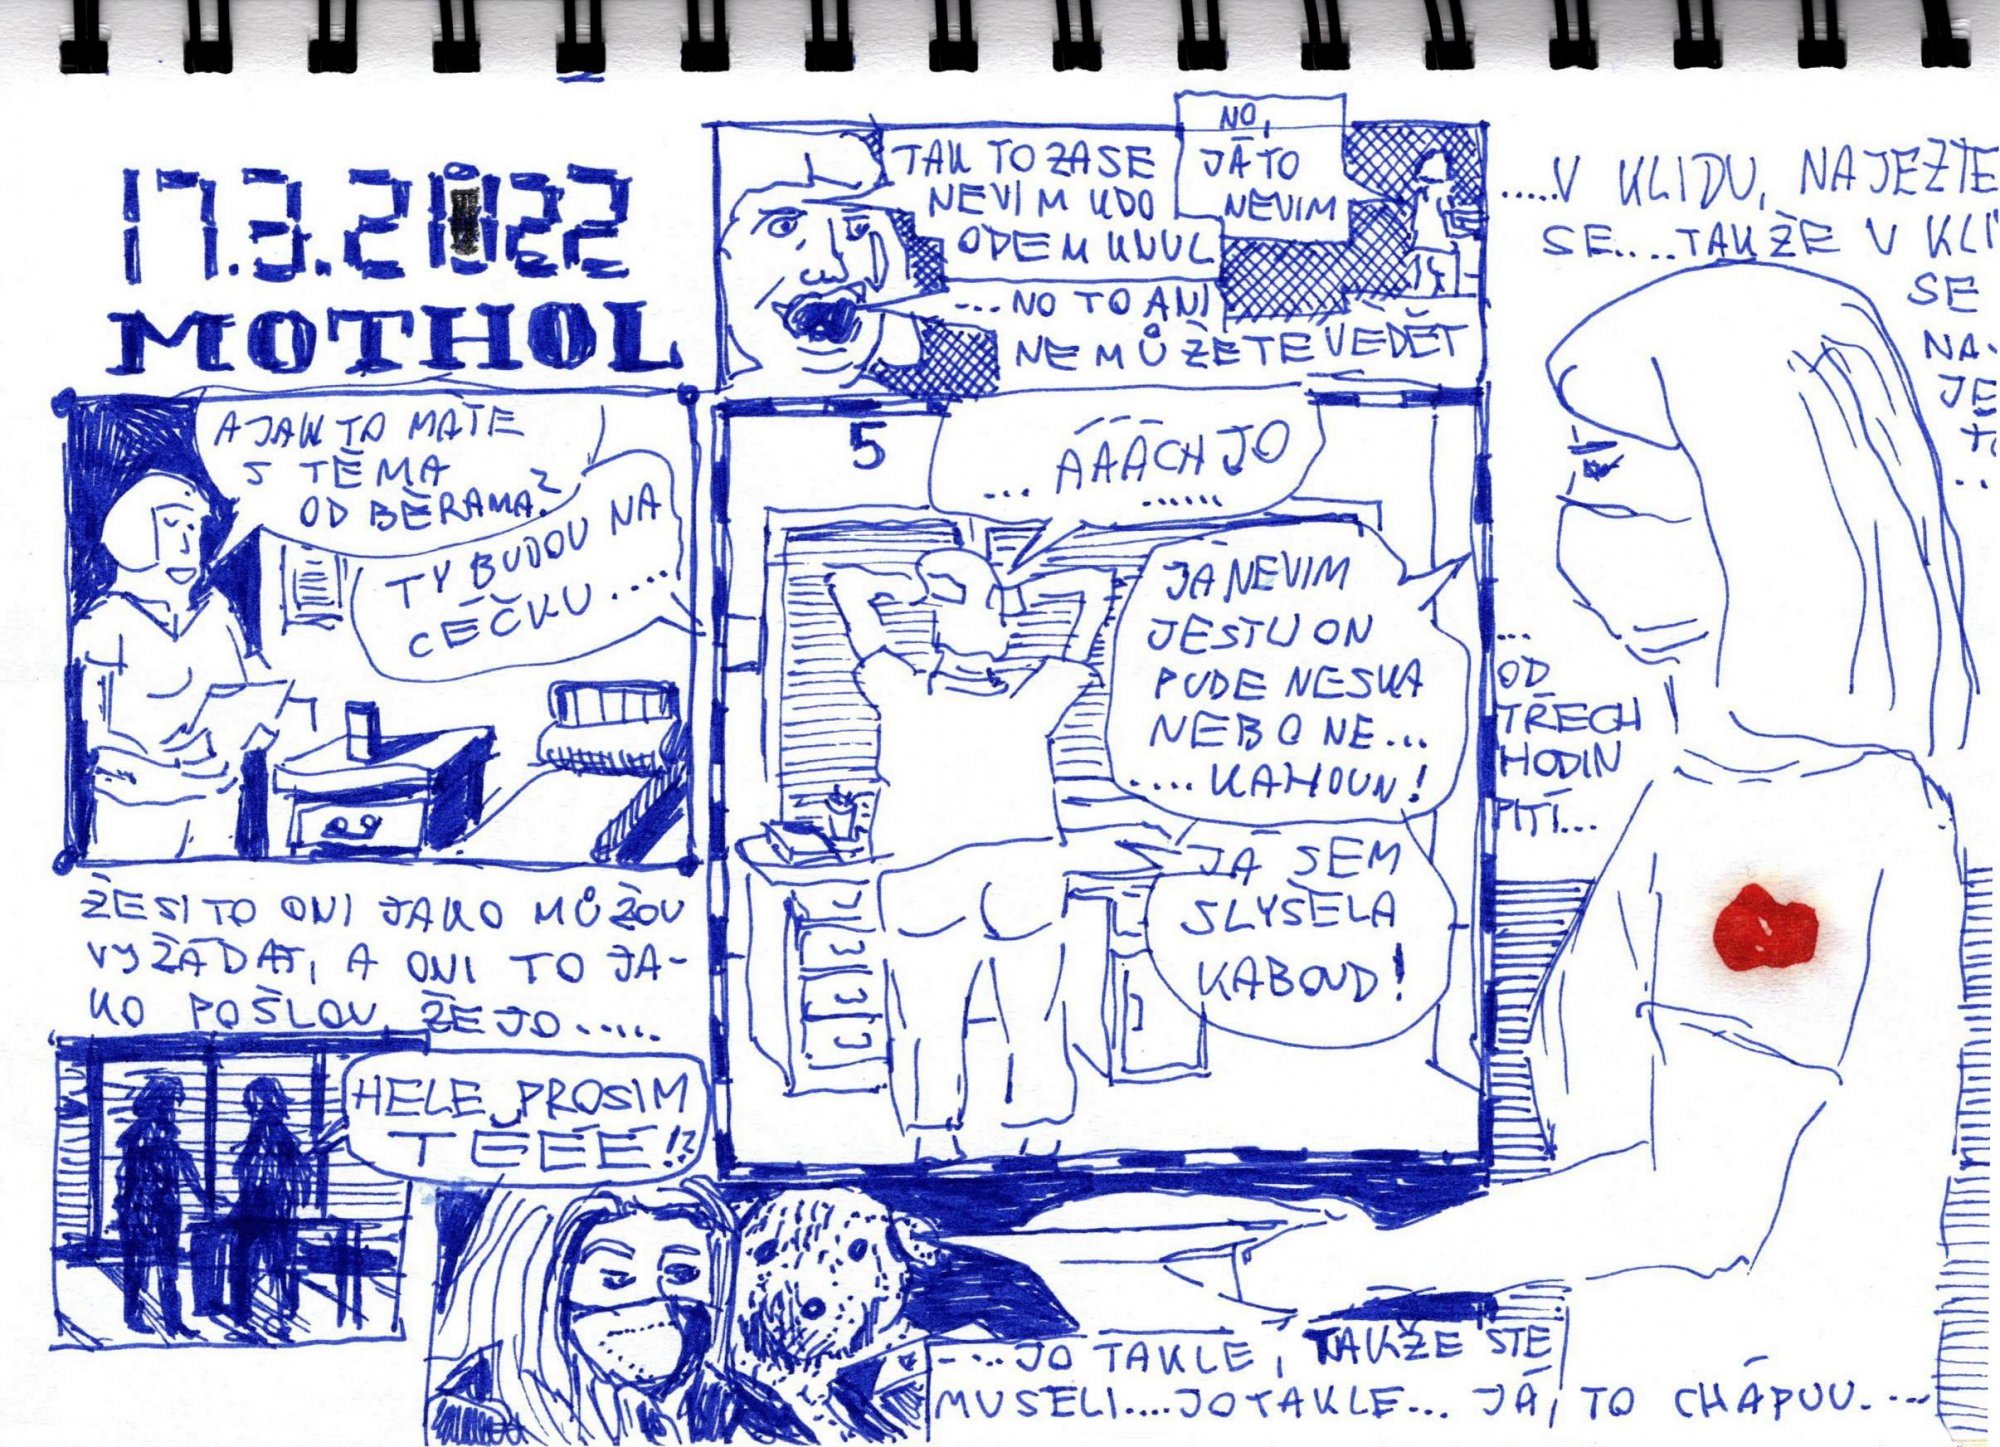 17.3.2022
MOTHOL
A JAK TO MÁTE
S TĚMA
ODBĚRAMA?
TY BUDOU NA
CÉČKU....
ŽE SI TO ONI JAKO MŮŽOU
VYŽÁDAT, A ONI TO JA-
KO POŠLOU, ŽE JO.....
HELE, PROSIM
TĚÉÉ!?
TAK TO ZASE
NEVÍM KDO
ODEMKNUL
NO,
JÁ TO
NEVIM
...NO TO ANI
NEMŮŽETE VĚDĚT
5
... ÁÁÁCH JO
......
JÁ NEVIM
JESTLI ON
PUDE NESKA
NEBO NE...
....KAHOUN!
JÁ SEM
SLYŠELA
KABOUD!
.....V KLIDU, NAJEZTE
SE....TAKŽE V KLI
SE
NA-
JE
...
OD
TŘECH
HODIN
PITÍ...
-...JO TAKLE, TAKŽE STE
MUSELI....JO TAKLE... JÁ, TO CHÁPUU....